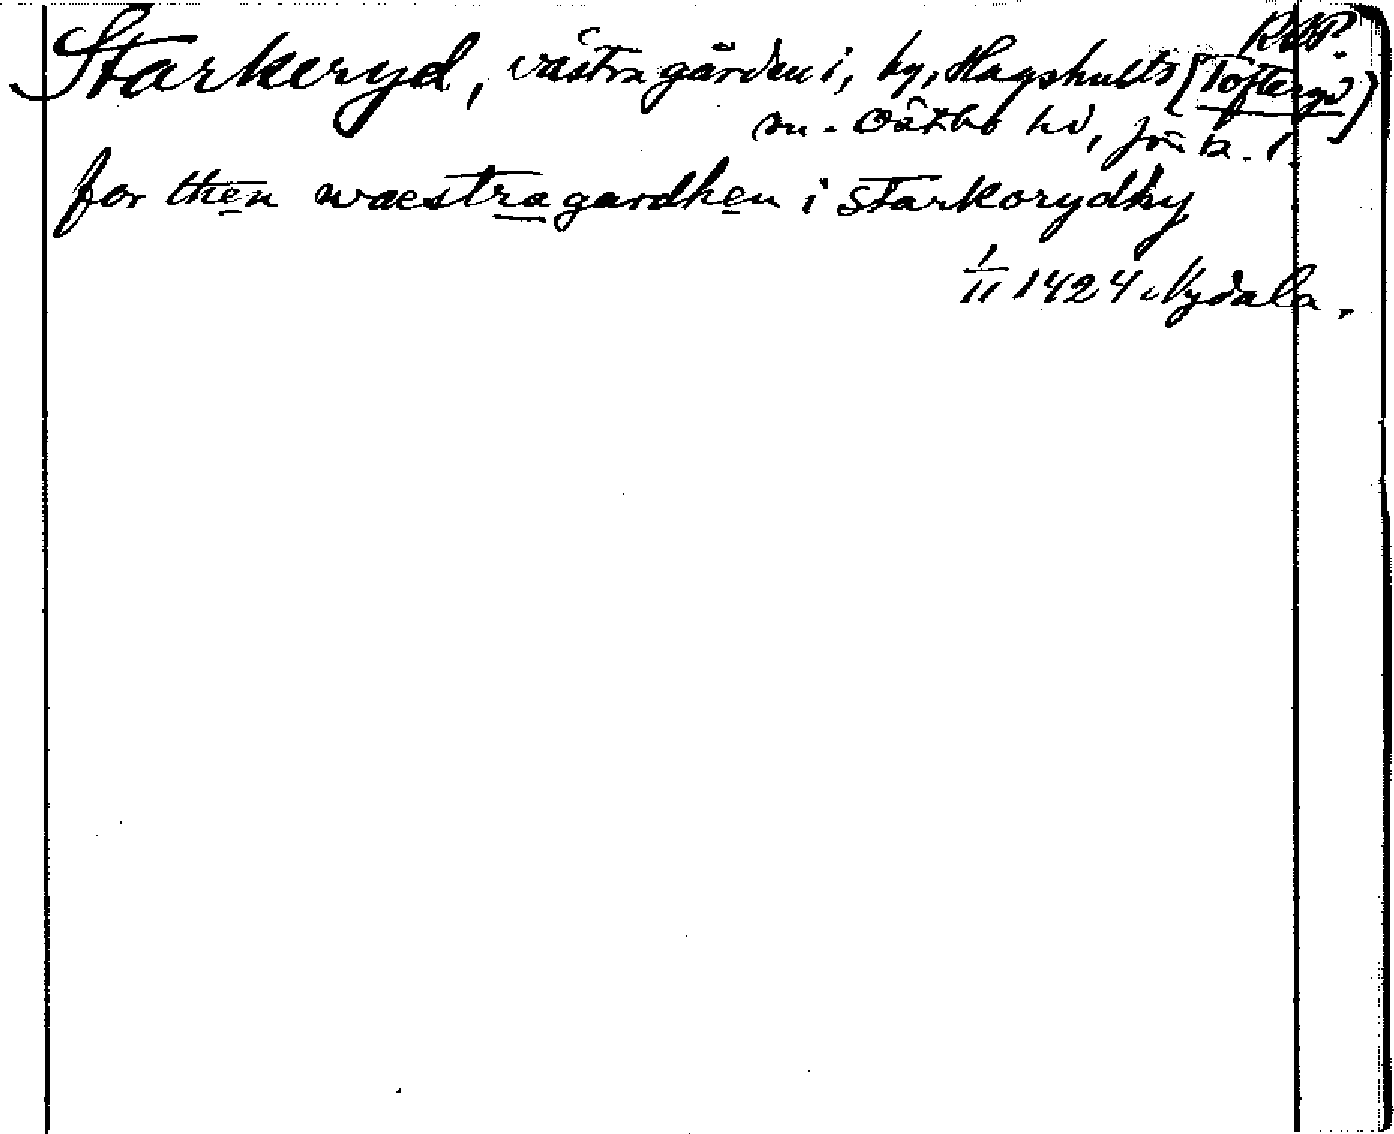 RAP.
Starkeryd, västra gården i, by, Hagshults (Tofteryd)
sn. Östbo hd, Jön k. l.
for then waestragardhen i starkorydhby
1/11 1424 Nydala.